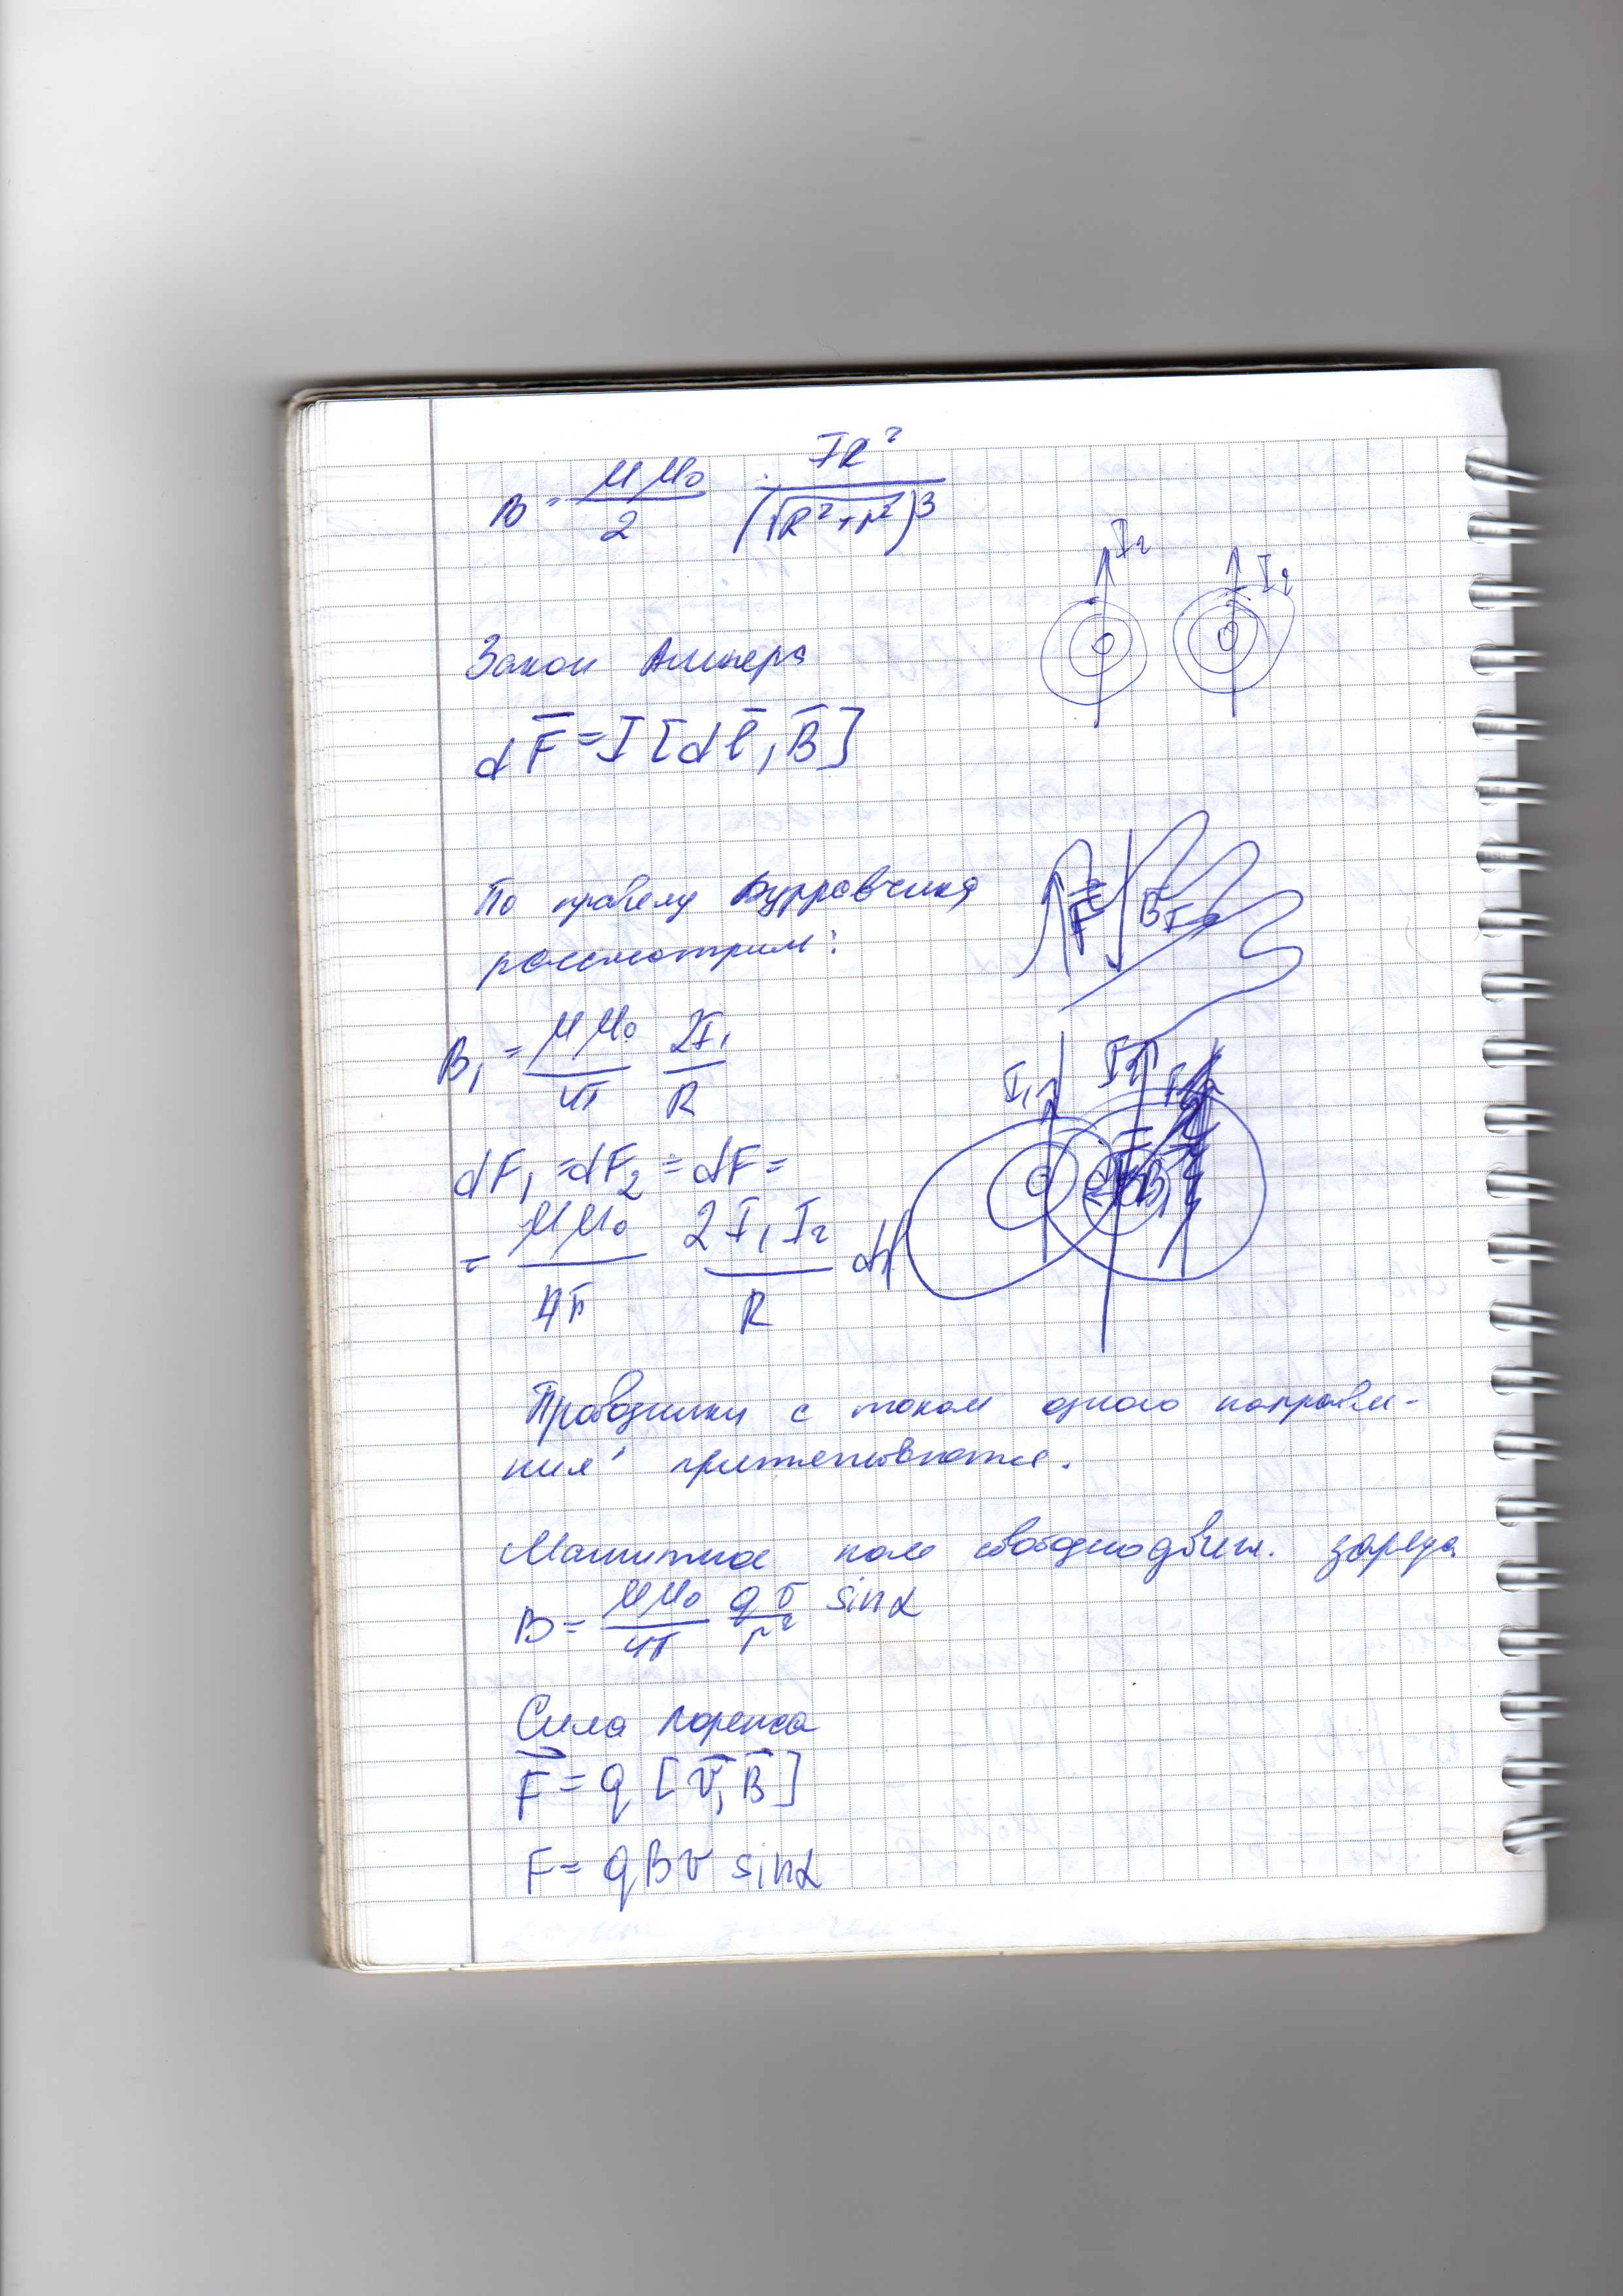 B = μμ₀/2 · IR²/(√R²+r²)³
I₂ I₁
Закон Ампера
dF̄ = I [dl̄, B̄]
По правилу Буравчика
рассмотрим:
F̄ B̄
B₁ = μμ₀/4π 2I₁/R
I₁ I₂
dF₁ = dF₂ = dF =
= μμ₀/4π 2I₁I₂/R dl
Проводники с током одного направле-
ния
Магнитное поле свободнодвиж. заряда
B = μμ₀/4π qv/r² sinα
Сила Лоренса
F⃗ = q [v⃗, B⃗]
F = qBv sinα